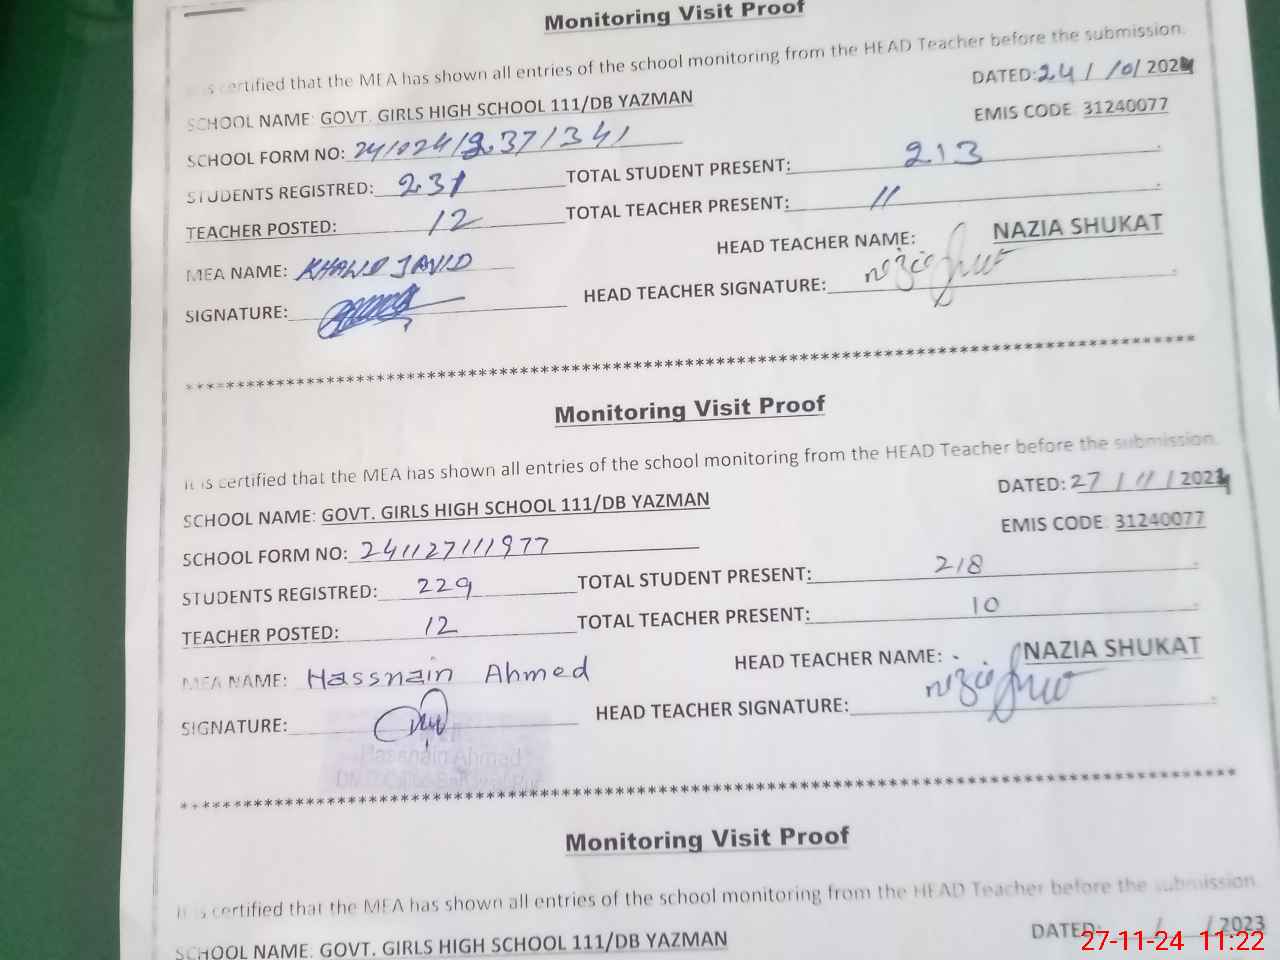 Monitoring Visit Proof
is certified that the MEA has shown all entries of the school monitoring from the HEAD Teacher before the submission.
DATED: 24/10/2024
SCHOOL NAME: GOVT. GIRLS HIGH SCHOOL 111/DB YAZMAN
EMIS CODE 31240077
SCHOOL FORM NO:
STUDENTS REGISTRED: 231 TOTAL STUDENT PRESENT: 213
TEACHER POSTED: 12 TOTAL TEACHER PRESENT: 11
MEA NAME: KHALID JAVID HEAD TEACHER NAME: NAZIA SHUKAT
SIGNATURE: HEAD TEACHER SIGNATURE:
****************************************************************
Monitoring Visit Proof
It is certified that the MEA has shown all entries of the school monitoring from the HEAD Teacher before the submission.
DATED: 27/11/2024
SCHOOL NAME: GOVT. GIRLS HIGH SCHOOL 111/DB YAZMAN
EMIS CODE 31240077
SCHOOL FORM NO: 241127111977
STUDENTS REGISTRED: 229 TOTAL STUDENT PRESENT: 218
TEACHER POSTED: 12 TOTAL TEACHER PRESENT: 10
MEA NAME: Hassnain Ahmed HEAD TEACHER NAME: NAZIA SHUKAT
SIGNATURE: HEAD TEACHER SIGNATURE:
Hassnain Ahmad
****************************************************************
Monitoring Visit Proof
It is certified that the MEA has shown all entries of the school monitoring from the HEAD Teacher before the submission.
DATED: / /2023
SCHOOL NAME: GOVT. GIRLS HIGH SCHOOL 111/DB YAZMAN
27-11-24 11:22